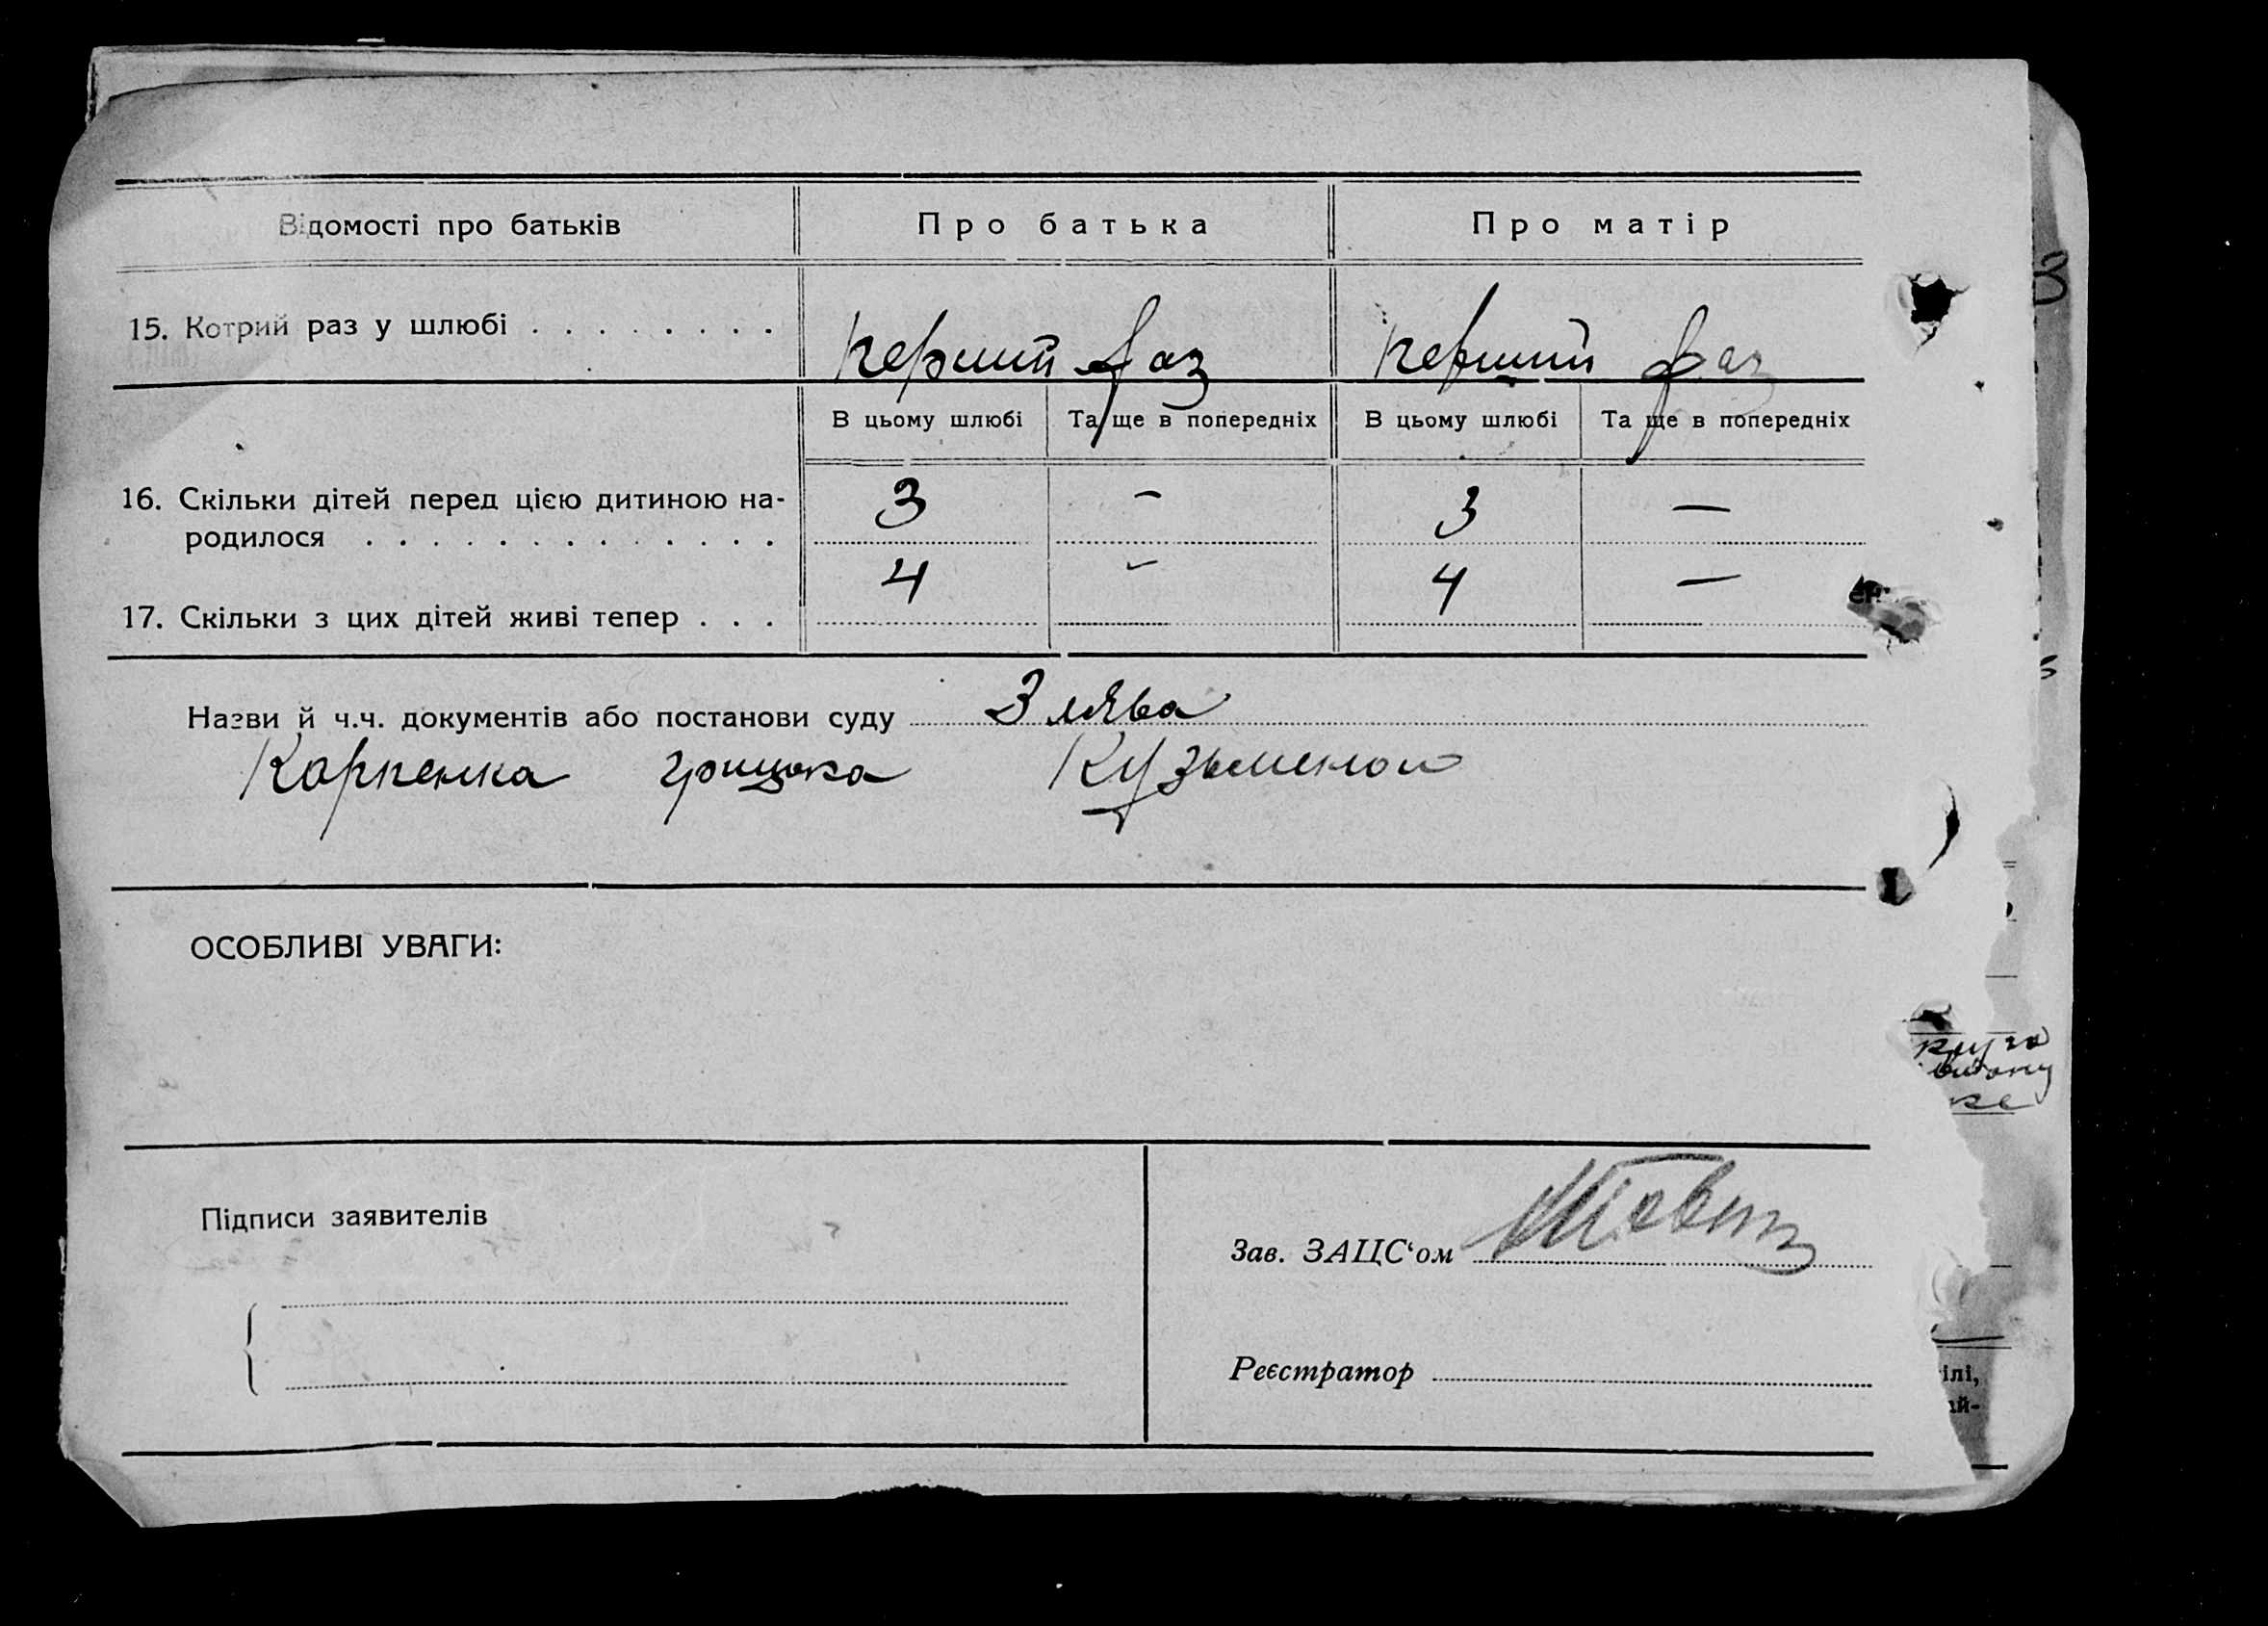 Відомості про батьків
Про батька
Про матір
15. Котрий раз у шлюбі . . . . . . . .
перший раз
перший раз
В цьому шлюбі
Та ще в попередніх
В цьому шлюбі
Та ще в попередніх
16. Скільки дітей перед цією дитиною на-
родилося . . . . . . . . . . . . .
3
-
3
—
17. Скільки з цих дітей живі тепер . . .
4
-
4
—
Назви й ч.ч. документів або постанови суду
Карпенка Грицька
ОСОБЛИВІ УВАГИ:
Підписи заявителів
Зав. ЗАЦС‘ом
Реєстратор
ілі,
ай-